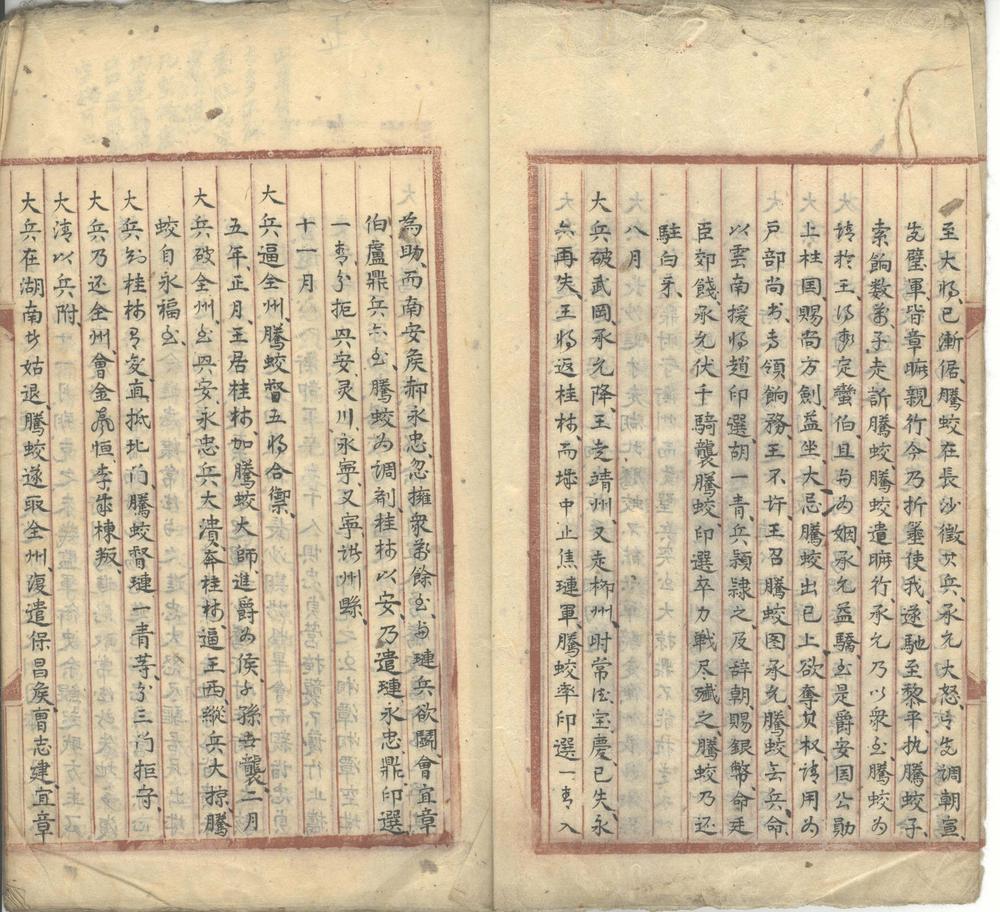 至大將已漸倨騰蛟在長沙徵其兵承允大怒曰先調朝宣
先璧軍皆章曠親行今乃折簡使我遂馳至黎平执騰蛟子
索餉数萬子走訴騰蛟騰蛟遣曠行承允乃以衆至騰蛟为
請於王得封定蠻伯且与为姻承允益驕至是爵安国公勛
上柱国賜尚方劍益坐大忌騰蛟出己上欲奪其权請用为
户部尚书专領餉務王不许王召騰蛟图承允騰蛟无兵命
以雲南援將趙印選胡一青兵隸之及辞朝賜銀幣命廷
臣郊餞承允伏千騎襲騰蛟印選卒力戰尽殲之騰蛟乃还
駐白牙
大八月
大兵破武岡承允降王走靖州又走柳州时常德宝慶已失永
亦再失王將返桂林而城中止焦璉軍騰蛟率印選一青入
为助而南安侯郝永忠忽擁衆萬餘至与璉兵欲鬪會宜章
伯盧鼎兵亦至騰蛟为調劑桂林以安乃遣璉永忠鼎印選
一青分拒兴安灵川永寧义寧诸州縣
十一月
大兵逼全州騰蛟督五將合禦
五年正月王居桂林加騰蛟太師進爵为侯子孫世襲二月
大兵破全州至兴安永忠兵大潰奔桂林逼王西縱兵大掠騰
蛟自永福至
大兵知桂林有变直抵北门騰蛟督璉一青等分三门拒守
大兵乃还全州會金聲恒李成棟叛
大清以兵附
大兵在湖南者姑退騰蛟遂取全州復遣保昌侯曹志建宜章